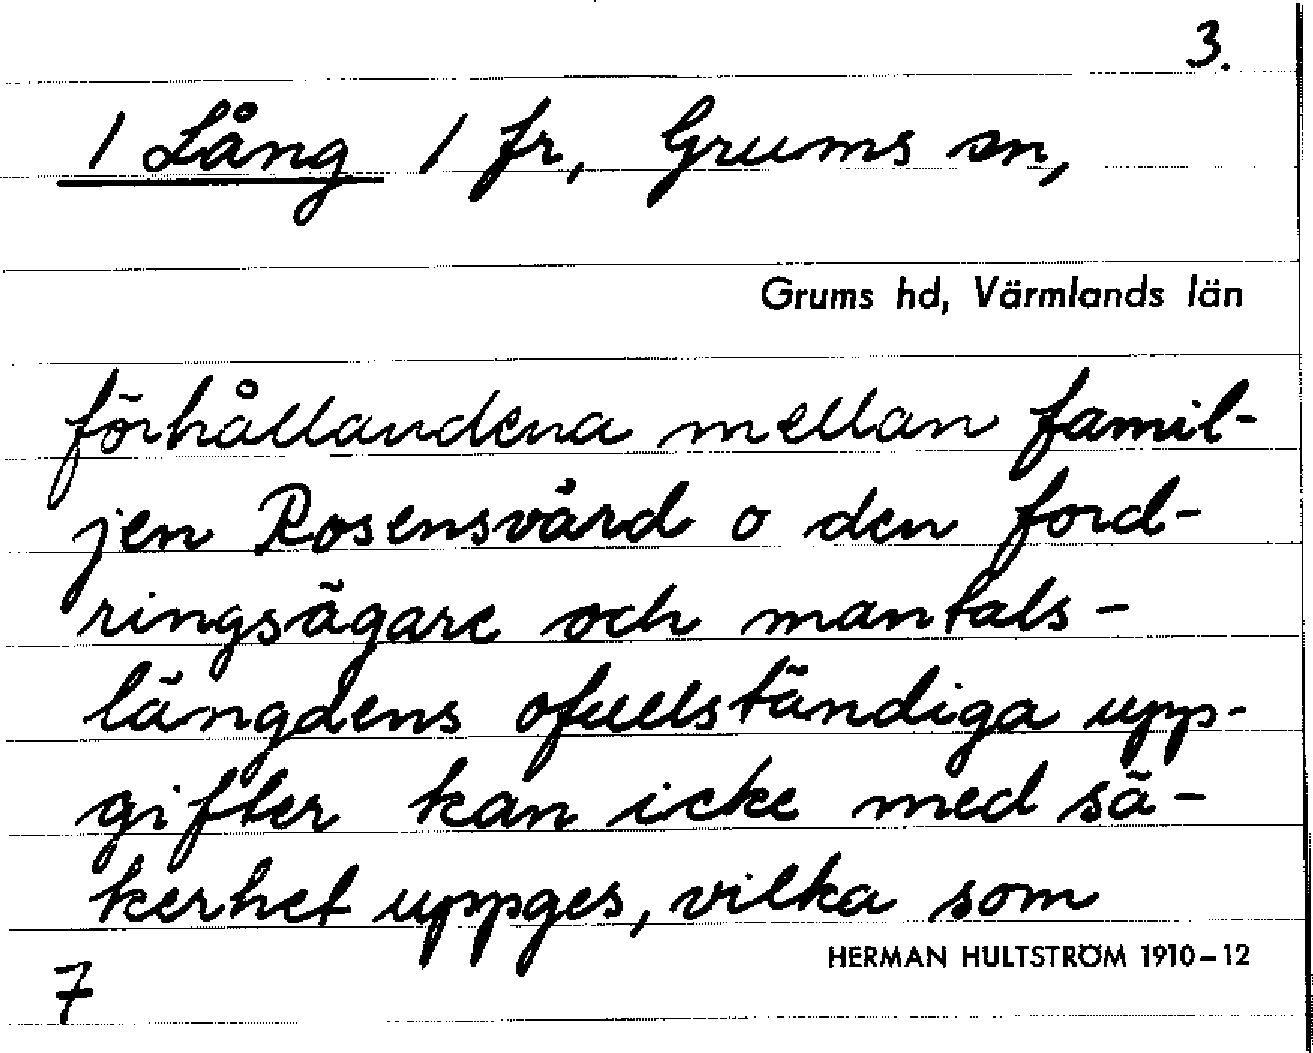 3.
1 Lång / 1 fr, Grums sn,
Grums hd, Värmlands län
förhållandena mellan famil-
jen Rosensvärd o den ford-
ringsägare och mantals-
längdens ofullständiga upp-
gifter kan icke med sä-
kerhet uppges, vilka som
HERMAN HULTSTRÖM 1910-12
7